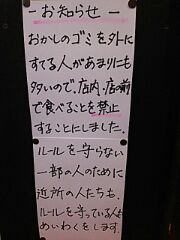 －お知らせ－
おかしのゴミを外に
すてる人があまりにも
多いので、店内、店の前
で食べることを禁止
することにしました。
ルールを守らない
一部の人のために
近所の人たちも、
ルールを守っている人も
めいわくをします。